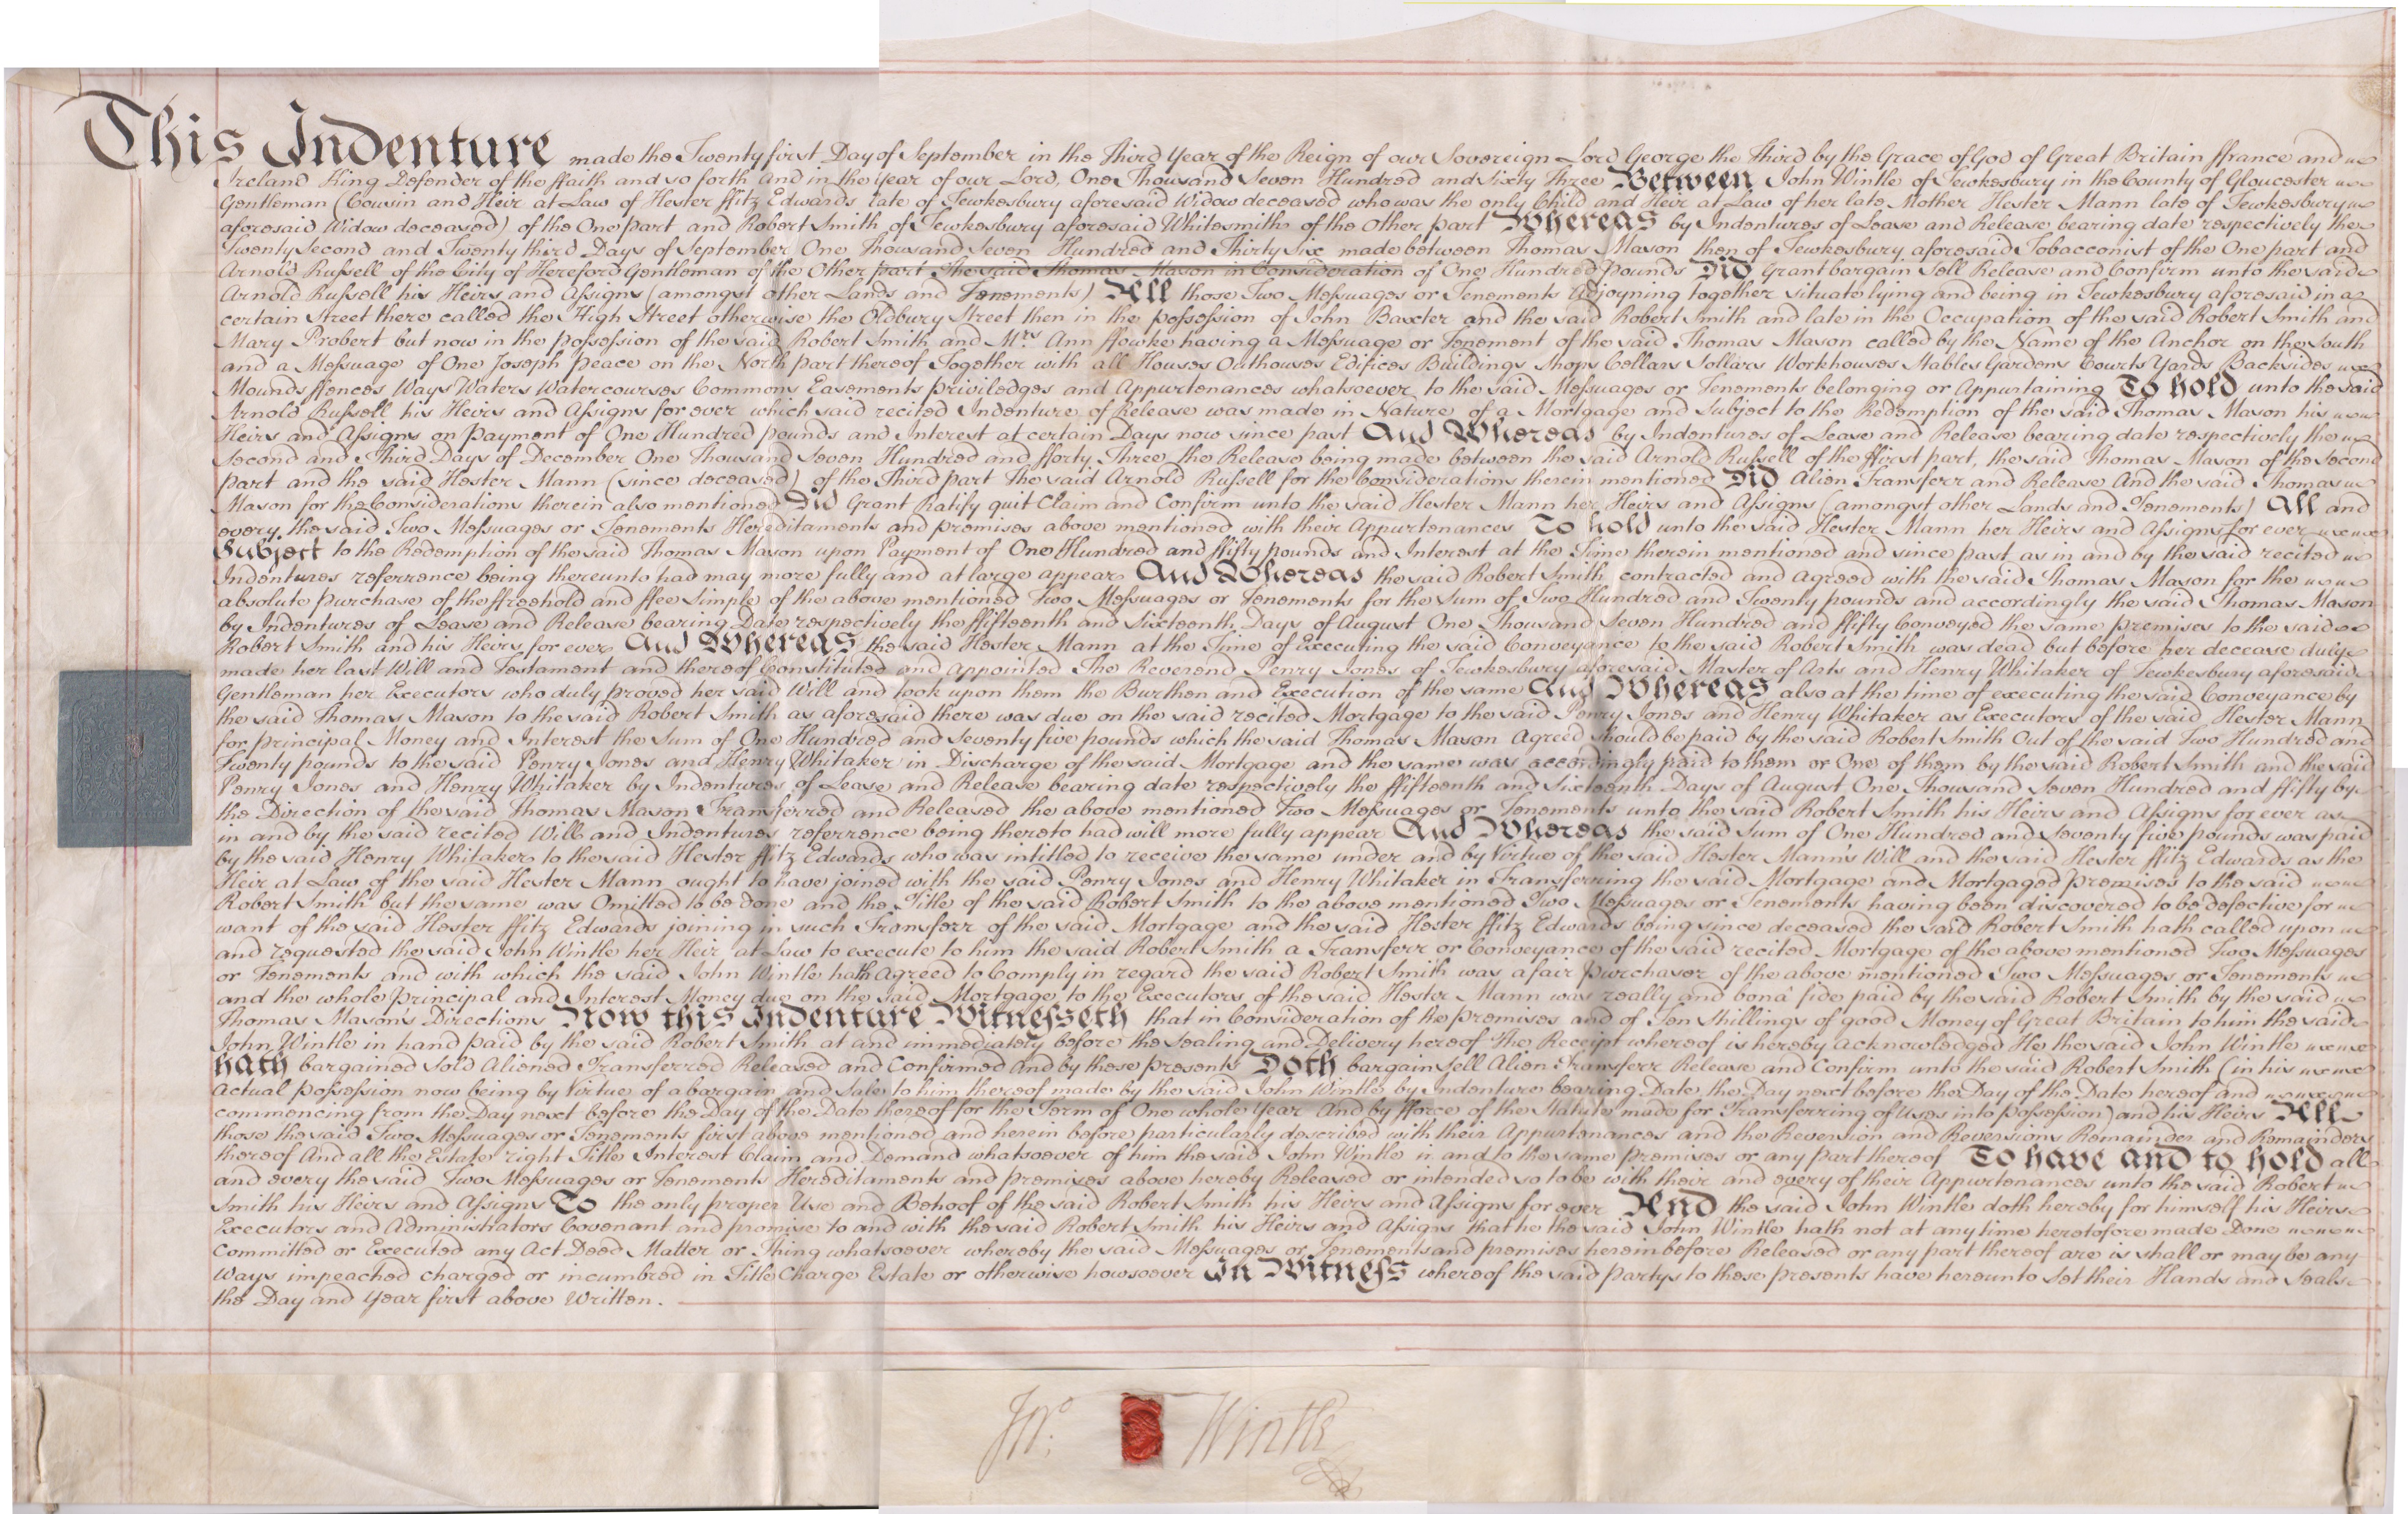 This Indenture made the Twenty first Day of September in the Third Year of the Reign of our Sovereign Lord George the Third by the Grace of God of Great Britain ffrance and
Ireland King Defender of the ffaith and so forth And in the Year of our Lord, One Thousand Seven Hundred and Sixty Three Between John Wintle of Tewkesbury in the County of Gloucester
Gentleman (Cousin and Heir at Law of Hester ffitz Edwards late of Tewkesbury aforesaid Widow deceased who was the only Child and Heir at Law of her late Mother Hester Mann late of Tewkesbury
aforesaid Widow deceased) of the One part and Robert Smith of Tewkesbury aforesaid Whitesmith of the Other part Whereas by Indentures of Lease and Release bearing date respectively the
Twenty Second and Twenty third Days of September One Thousand Seven Hundred and Thirty Six made between Thomas Mason then of Tewkesbury aforesaid Tobacconist of the One part and
Arnold Russell of the City of Hereford Gentleman of the Other part The said Thomas Mason in Consideration of One Hundred Pounds Did Grant bargain Sell Release and Confirm unto the said
Arnold Russell his Heirs and Assigns (amongst other Lands and Tenements) All those Two Messuages or Tenements Adjoyning together situate lying and being in Tewkesbury aforesaid in a
certain Street there called the High Street otherwise the Oldbury Street then in the possession of John Baxter and the said Robert Smith and late in the Occupation of the said Robert Smith and
Mary Probert but now in the possession of the said Robert Smith and Mrs Ann ffowke having a Messuage or Tenement of the said Thomas Mason called by the Name of the Anchor on the South
and a Messuage of One Joseph Peace on the North part thereof Together with all Houses Outhouses Edifices Buildings Shops Cellars Sollars Workhouses Stables Gardens Courts Yards Backsides
Mounds ffences Ways Waters Watercourses Commons Easements priviledges and Appurtenances whatsoever to the said Messuages or Tenements belonging or Appurtaining To hold unto the said
Arnold Russell his Heirs and Assigns for ever which said recited Indenture of Release was made in Nature of a Mortgage and Subject to the Redemption of the said Thomas Mason his
Heirs and Assigns on Payment of One Hundred pounds and Interest at certain Days now since past And Whereas by Indentures of Lease and Release bearing date respectively the
Second and Third Days of December One Thousand Seven Hundred and fforty Three the Release being made between the said Arnold Russell of the ffirst part, the said Thomas Mason of the Second
part and the said Hester Mann (since deceased) of the Third part The said Arnold Russell for the Considerations therein mentioned Did Alien Transferr and Release And the said Thomas
Mason for the Considerations therein also mentioned Did Grant Ratify quit Claim and Confirm unto the said Hester Mann her Heirs and Assigns (amongst other Lands and Tenements) All and
every the said Two Messuages or Tenements Hereditaments and premises above mentioned with their Appurtenances To hold unto the said Hester Mann her Heirs and Assigns for ever
Subject to the Redemption of the said Thomas Mason upon Payment of One Hundred and ffifty pounds and Interest at the Time therein mentioned and since past as in and by the said recited
Indentures referrence being thereunto had may more fully and at large appear And Whereas the said Robert Smith contracted and agreed with the said Thomas Mason for the
absolute purchase of the ffreehold and ffee Simple of the above mentioned Two Messuages or Tenements for the Sum of Two Hundred and Twenty pounds and accordingly the said Thomas Mason
by Indentures of Lease and Release bearing Date respectively the ffifteenth and Sixteenth Days of August One Thousand Seven Hundred and ffifty Conveyed the same premises to the said
Robert Smith and his Heirs for ever And Whereas the said Hester Mann at the Time of Executing the said Conveyance to the said Robert Smith was dead but before her decease duly
made her last Will and Testament and thereof Constituted and Appointed The Reverend Penry Jones of Tewkesbury aforesaid Master of Arts and Henry Whitaker of Tewkesbury aforesaid
Gentleman her Executors who duly proved her said Will and took upon them the Burthen and Execution of the same And Whereas also at the time of executing the said Conveyance by
the said Thomas Mason to the said Robert Smith as aforesaid there was due on the said recited Mortgage to the said Penry Jones and Henry Whitaker as Executors of the said Hester Mann
for principal Money and Interest the Sum of One Hundred and Seventy five pounds which the said Thomas Mason Agreed should be paid by the said Robert Smith Out of the said Two Hundred and
Twenty pounds to the said Penry Jones and Henry Whitaker in Discharge of the said Mortgage and the same was accordingly paid to them or One of them by the said Robert Smith and the said
Penry Jones and Henry Whitaker by Indentures of Lease and Release bearing date respectively the ffifteenth and Sixteenth Days of August One Thousand Seven Hundred and ffifty by
the Direction of the said Thomas Mason Transferred and Released the above mentioned Two Messuages or Tenements unto the said Robert Smith his Heirs and Assigns for ever as
in and by the said recited Will and Indentures referrence being thereto had will more fully appear And Whereas the said Sum of One Hundred and Seventy five pounds was paid
by the said Henry Whitaker to the said Hester ffitz Edwards who was intitled to receive the same under and by Virtue of the said Hester Mann's Will and the said Hester ffitz Edwards as the
Heir at Law of the said Hester Mann ought to have joined with the said Penry Jones and Henry Whitaker in Transferring the said Mortgage and Mortgaged premises to the said
Robert Smith but the same was Omitted to be done and the Title of the said Robert Smith to the above mentioned Two Messuages or Tenements having been discovered to be defective for
want of the said Hester ffitz Edwards joining in such Transferr of the said Mortgage and the said Hester ffitz Edwards being since deceased the said Robert Smith hath called upon
and requested the said John Wintle her Heir at Law to execute to him the said Robert Smith a Transferr or Conveyance of the said recited Mortgage of the above mentioned Two Messuages
or Tenements and with which the said John Wintle hath Agreed to Comply in regard the said Robert Smith was a fair purchaser of the above mentioned Two Messuages or Tenements
and the whole Principal and Interest Money due on the said Mortgage to the Executors of the said Hester Mann was really and bonâ fide paid by the said Robert Smith by the said
Thomas Mason's Directions Now this Indenture Witnesseth that in Consideration of the premises and of Ten Shillings of good Money of Great Britain to him the said
John Wintle in hand paid by the said Robert Smith at and immediately before the Sealing and Delivery hereof The Receipt whereof is hereby Acknowledged He the said John Wintle
hath bargained Sold Aliened Transferred Released and Confirmed And by these presents Doth bargain Sell Alien Transferr Release and Confirm unto the said Robert Smith (in his
Actual possession now being by Virtue of a bargain and Sale to him thereof made by the said John Wintle by Indenture bearing Date the Day next before the Day of the Date hereof and
commencing from the Day next before the Day of the Date thereof for the Term of One whole Year And by fforce of the Statute made for Transferring of Uses into possession) and his Heirs All
those the said Two Messuages or Tenements first above mentioned and herein before particularly described with their Appurtenances and the Reversion and Reversions Remainder and Remainders
thereof And all the Estate right Title Interest Claim and Demand whatsoever of him the said John Wintle in and to the same premises or any part thereof To have and to hold all
and every the said Two Messuages or Tenements Hereditaments and premises above hereby Released or intended so to be with their and every of their Appurtenances unto the said Robert
Smith his Heirs and Assigns To the only proper Use and Behoof of the said Robert Smith his Heirs and Assigns for ever And the said John Wintle doth hereby for himself his Heirs
Executors and Administrators Covenant and promise to and with the said Robert Smith his Heirs and Assigns that he the said John Wintle hath not at any time heretofore made Done
Committed or Executed any Act Deed Matter or Thing whatsoever whereby the said Messuages or Tenements and premises hereinbefore Released or any part thereof are is shall or may be any
Ways impeached charged or incumbred in Title Charge Estate or otherwise howsoever In Witness whereof the said partys to these presents have hereunto Set their Hands and Seals
the Day and Year first above Written.
Jno. Wintle